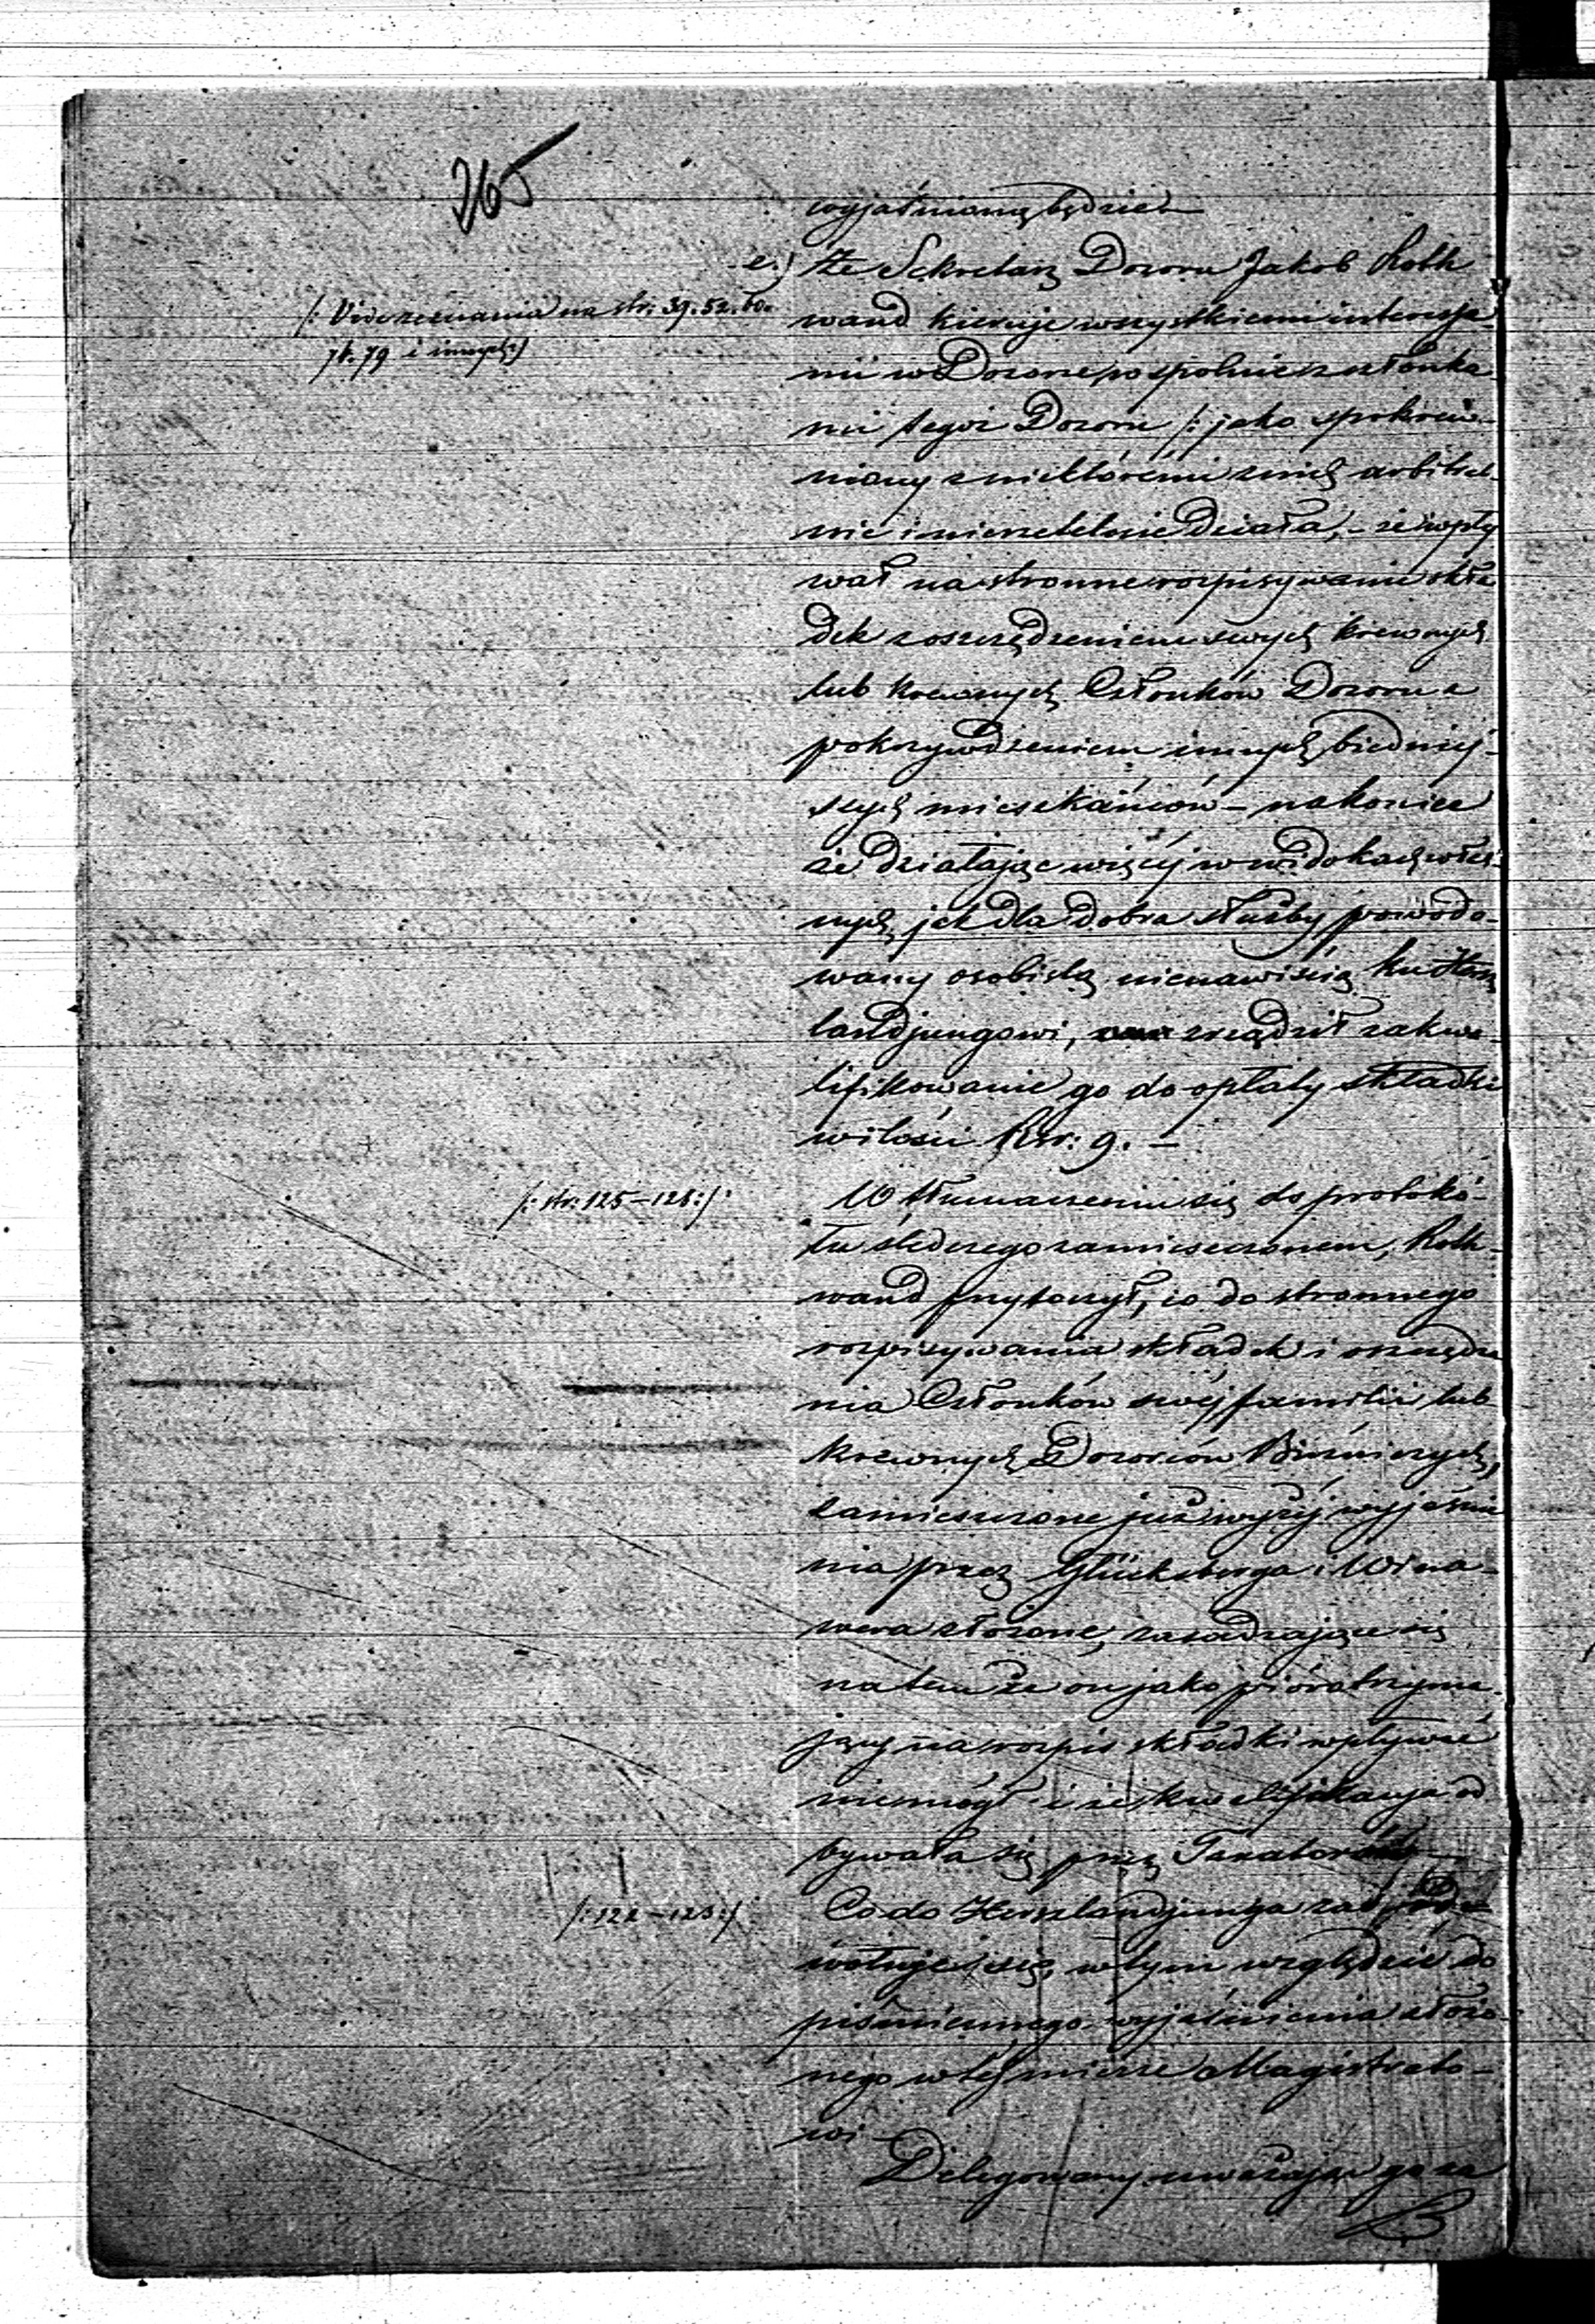 265
wyjaśnioną będzie.
e.) Że Sekretarz Dozoru Jakob Roth
/: Vide zeznania na str: 39. 52. 60.
74. 79 i innych:/
wand kieruje wszystkiemi interessa-
mi w Dozorze pospolnie z członka-
mi tegoż Dozoru /: jako spokrew-
niony z niektóremi z nich arbitral-
nie i nierzetelnie działa, – że wpły
wał na stronne rozpisywanie skła
dek z oszczędzeniem swych krewnych
lub krewnych Członków Dozoru z
pokrzywdzeniem innych biedniej-
szych mieszkańców – nakoniec
że działając więcej w widokach włas-
nych jak dla dobra służby, powodo-
wany osobistą nienawiścią ku Hersz
landjungowi, zrządził zakwa-
lifikowanie go do opłaty składki
w ilości Rsr: 9. –
/: str: 125 – 128:/
W tłumaczeniu się do protokó-
łu śledczego zamieszczonem, Roth-
wand przytoczył, co do stronnego
rozpisywania składek i oszczędza
nia Członków swéj familii lub
krewnych Dozorców Bóżniczych,
zamieszczone już wyżéj wyjaśnie
nia przez Glücksberga i Wina-
wera złożone, zasadzające się
na tem że on jako pióro trzyma-
jący na rozpis składki wpływać
niemógł i że kwalifikacja od
bywała się przez Taxatorów –
/: 122 – 123:/
Co do Herszlandjunga zaś, odwo-
wołuje się w tym względzie do
piśmiennego wyjaśnienia złożo-
nego w tej mierze Magistrato-
wi –
Delegowany uważając go za